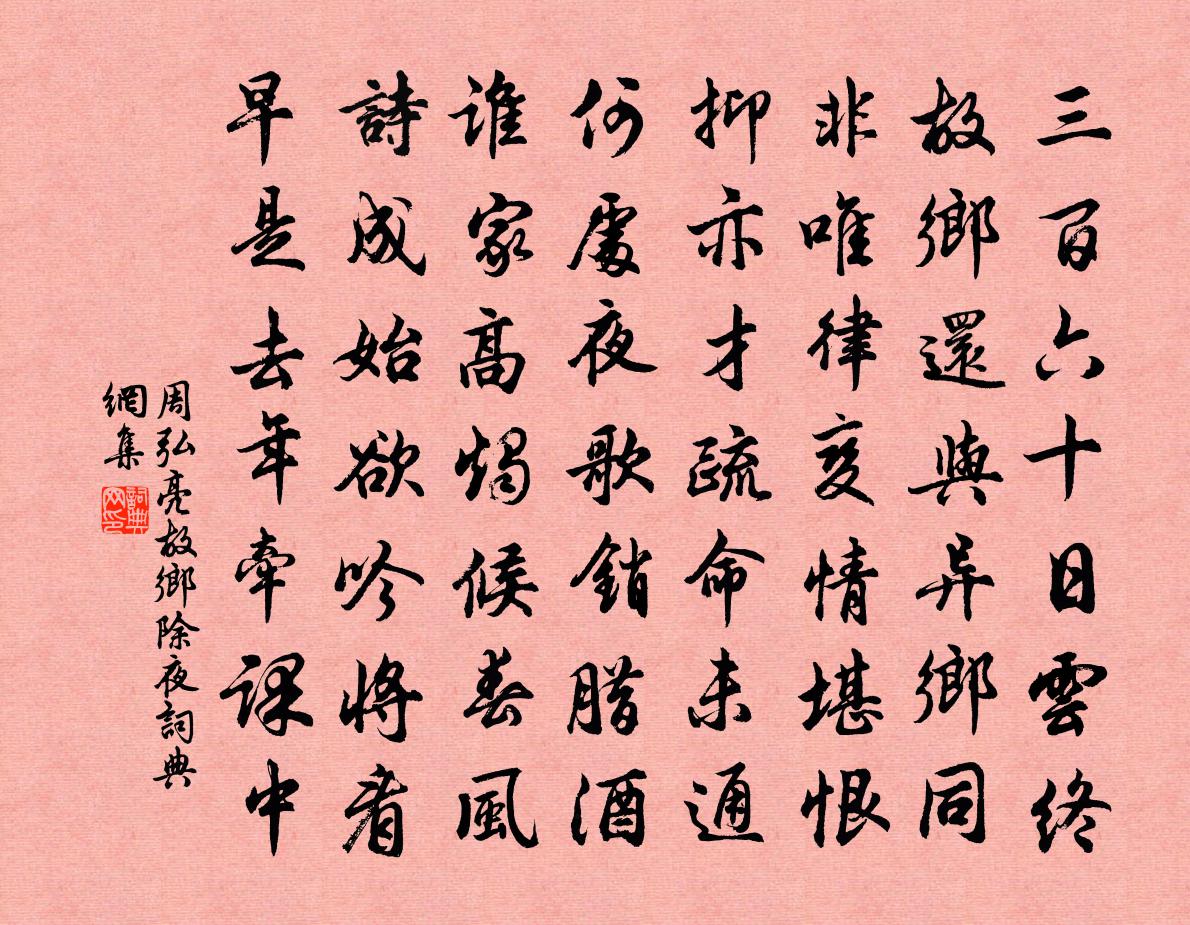 三百六十日雲終
故鄉還與异鄉同
非唯律變情堪恨
抑亦才疏命未通
何處夜歌銷腊酒
谁家高燭候春風
詩成始欲吟將看
早是去年牽課中
周弘亮故鄉除夜詞典
網集
詞典
网印